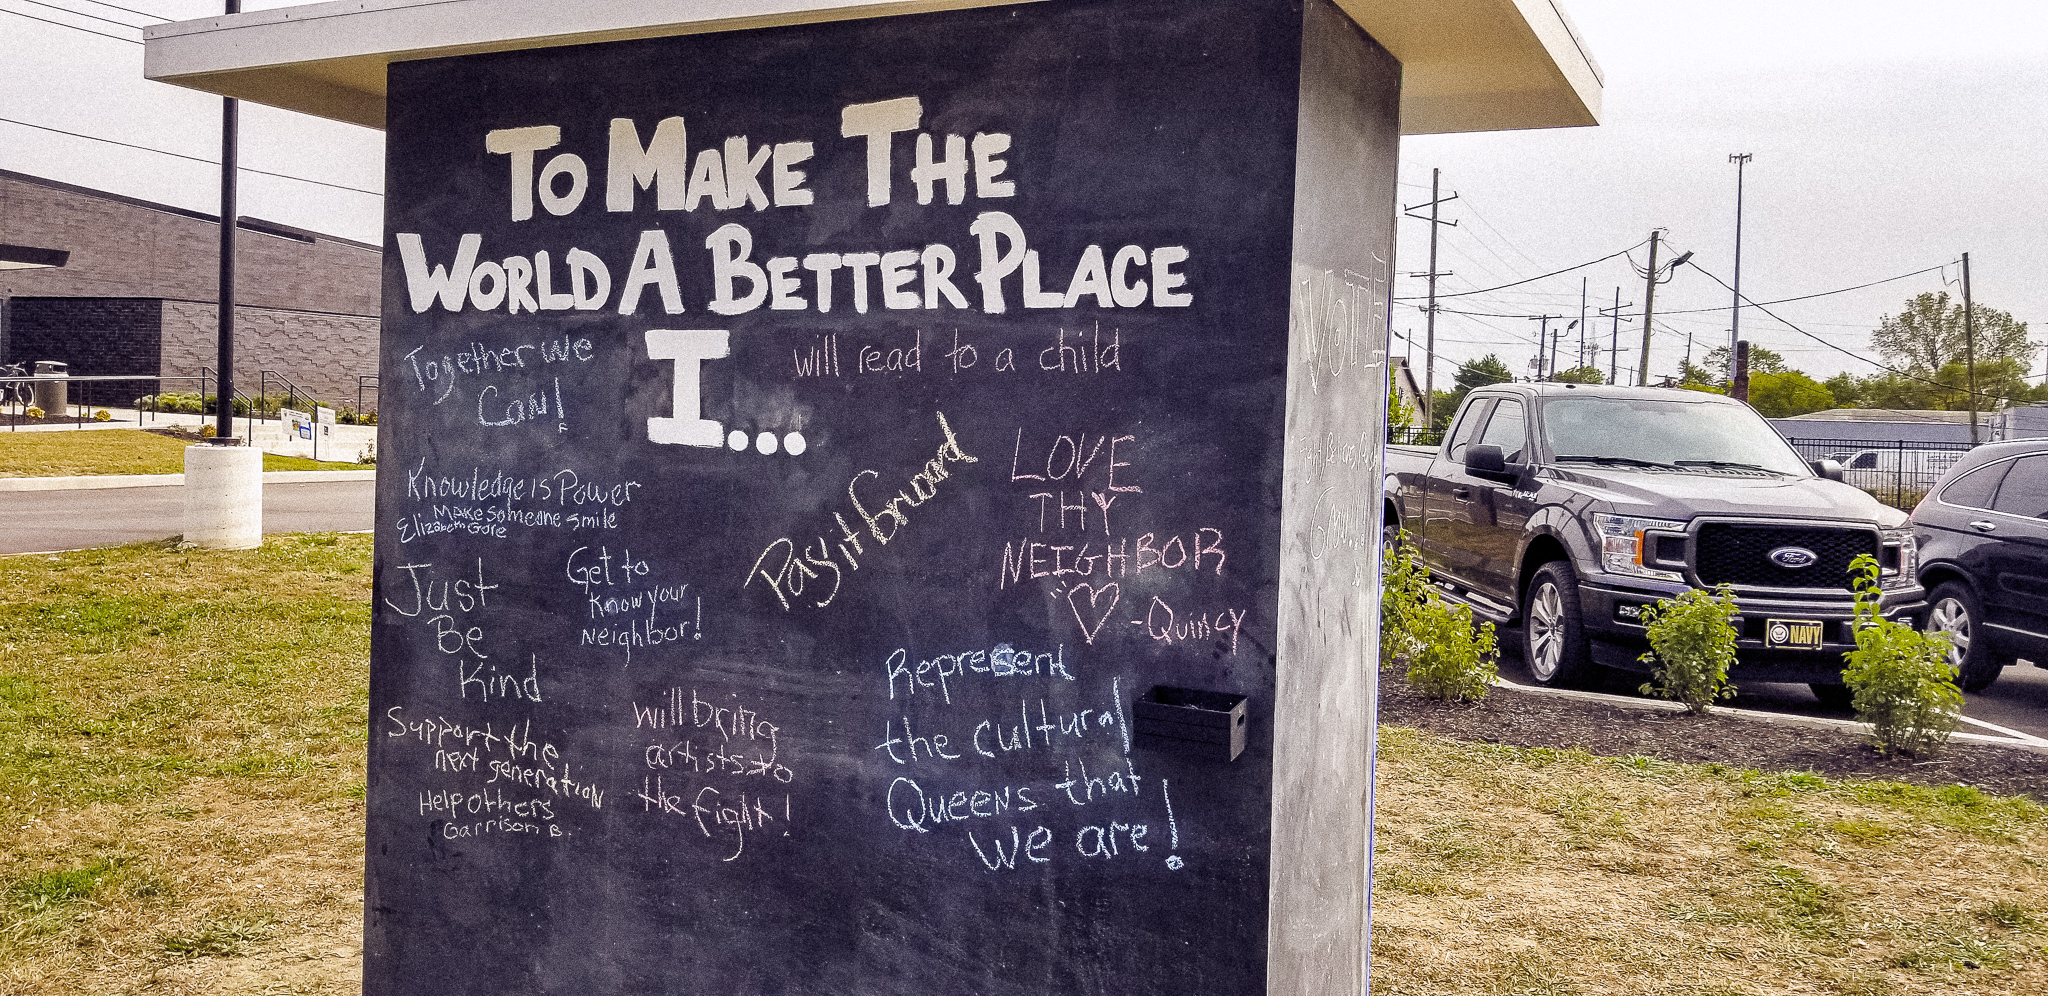 TO MAKE THE
WORLD A BETTER PLACE
I...
will read to a child
Together we
Can!
Knowledge is Power
Make someone smile
Elizabeth Gore
Just
Be
Kind
Get to
Know your
Neighbor!
Pay it forward
LOVE
THY
NEIGHBOR
-Quincy
Support the
next generation
Help others
Garrison B.
will bring
artists to
the fight!
Represent
the cultural
Queens that
we are!
VOTE
Ford
NAVY